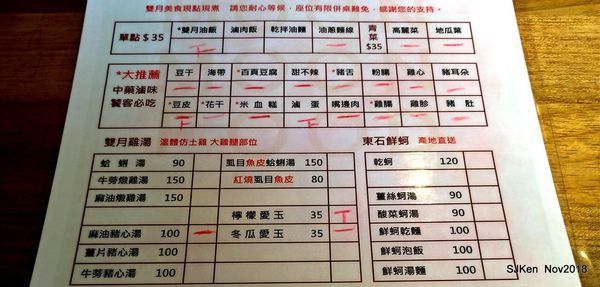 雙月美食現點現煮 請您耐心等候，座位有限併桌難免，感謝您的支持。
單點 $35 *雙月油飯 滷肉飯 乾拌油麵 油蔥麵線 青菜 $35 高麗菜 地瓜葉
*大推薦 中藥滷味 饕客必吃
豆干 海帶 *百頁豆腐 甜不辣 *豬舌 粉腸 雞心 豬耳朵
*豆皮 *花干 *米血糕 滷蛋 *嘴邊肉 *雞腸 雞胗 豬肚
雙月雞湯 溫體仿土雞 大雞腿部位
蛤蜊湯 90 虱目魚皮蛤蜊湯 150
牛蒡燉雞湯 150 紅燒虱目魚皮 80
麻油燉雞湯 150
檸檬愛玉 35
麻油豬心湯 100 冬瓜愛玉 35
薑片豬心湯 100
牛蒡豬心湯 100
東石鮮蚵 產地直送
乾蚵 120
薑絲蚵湯 90
酸菜蚵湯 90
鮮蚵乾麵 100
鮮蚵泡飯 100
鮮蚵湯麵 100
SJKen Nov2018